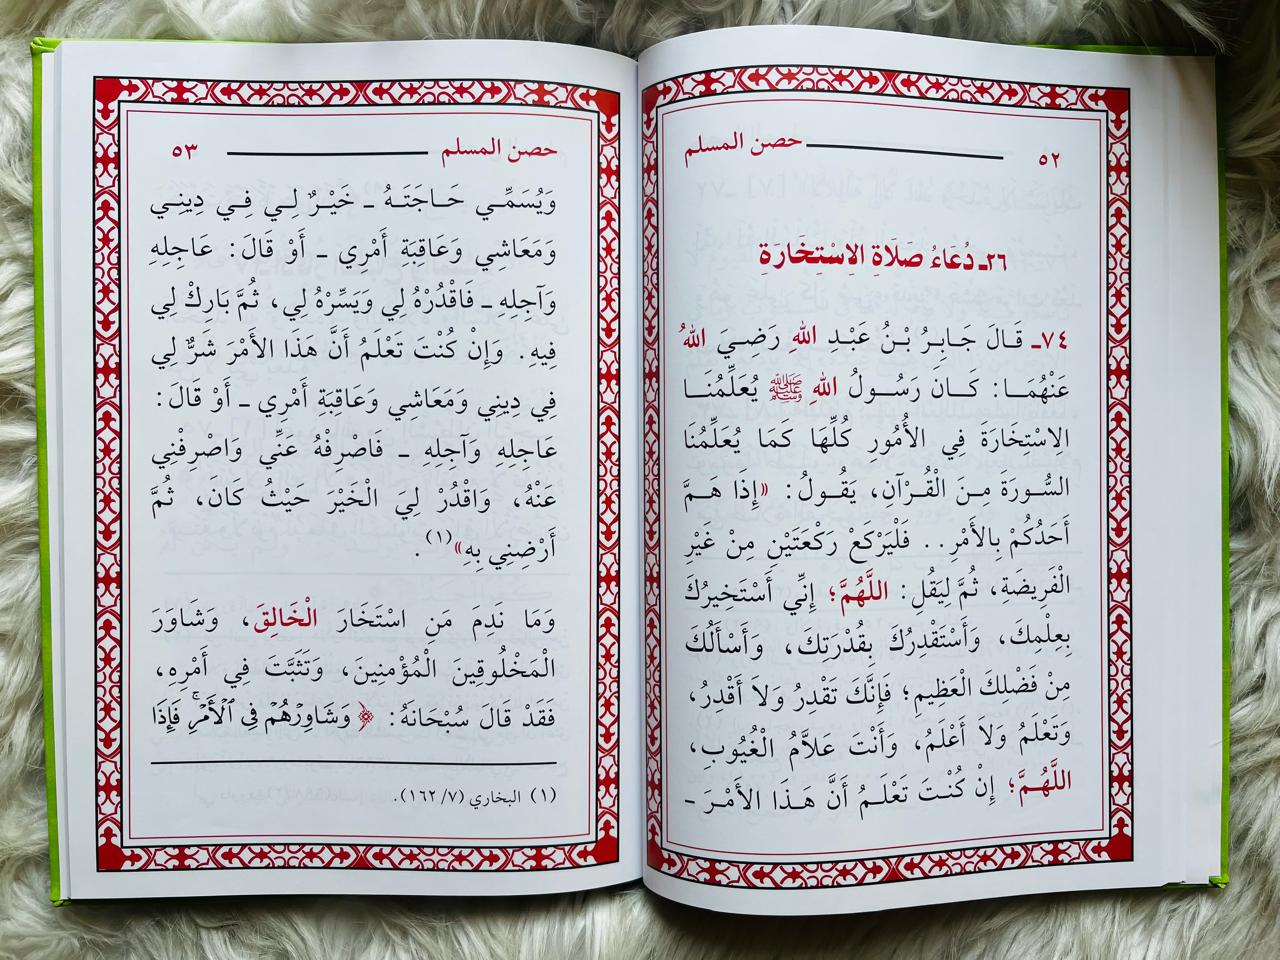 ٥٢ حصن المسلم
٢٦ـ دُعَاءُ صَلَاةِ الِاسْتِخَارَةِ
٧٤ـ قَالَ جَابِرُ بْنُ عَبْدِ اللهِ رَضِيَ اللهُ
عَنْهُمَا: كَانَ رَسُولُ اللهِ ﷺ يُعَلِّمُنَا
الِاسْتِخَارَةَ فِي الأُمُورِ كُلِّهَا كَمَا يُعَلِّمُنَا
السُّورَةَ مِنَ الْقُرْآنِ، يَقُولُ: «إِذَا هَمَّ
أَحَدُكُمْ بِالأَمْرِ.. فَلْيَرْكَعْ رَكْعَتَيْنِ مِنْ غَيْرِ
الْفَرِيضَةِ، ثُمَّ لِيَقُلِ: اللَّهُمَّ؛ إِنِّي أَسْتَخِيرُكَ
بِعِلْمِكَ، وَأَسْتَقْدِرُكَ بِقُدْرَتِكَ، وَأَسْأَلُكَ
مِنْ فَضْلِكَ الْعَظِيمِ؛ فَإِنَّكَ تَقْدِرُ وَلاَ أَقْدِرُ،
وَتَعْلَمُ وَلاَ أَعْلَمُ، وَأَنْتَ عَلاَّمُ الْغُيُوبِ،
اللَّهُمَّ؛ إِنْ كُنْتَ تَعْلَمُ أَنَّ هَذَا الأَمْرَ-
حصن المسلم ٥٣
وَيُسَمِّي حَاجَتَهُ ـ خَيْرٌ لِي فِي دِينِي
وَمَعَاشِي وَعَاقِبَةِ أَمْرِي ـ أَوْ قَالَ: عَاجِلِهِ
وَآجِلِهِ ـ فَاقْدُرْهُ لِي وَيَسِّرْهُ لِي، ثُمَّ بَارِكْ لِي
فِيهِ. وَإِنْ كُنْتَ تَعْلَمُ أَنَّ هَذَا الأَمْرَ شَرٌّ لِي
فِي دِينِي وَمَعَاشِي وَعَاقِبَةِ أَمْرِي ـ أَوْ قَالَ:
عَاجِلِهِ وَآجِلِهِ ـ فَاصْرِفْهُ عَنِّي وَاصْرِفْنِي
عَنْهُ، وَاقْدُرْ لِيَ الْخَيْرَ حَيْثُ كَانَ، ثُمَّ
أَرْضِنِي بِهِ»(١).
وَمَا نَدِمَ مَنِ اسْتَخَارَ الْخَالِقَ، وَشَاوَرَ
الْمَخْلُوقِينَ الْمُؤْمِنِينَ، وَتَثَبَّتَ فِي أَمْرِهِ،
فَقَدْ قَالَ سُبْحَانَهُ: ﴿وَشَاوِرْهُمْ فِي ٱلْأَمْرِۖ فَإِذَا
(١) البخاري (٧/ ١٦٢).